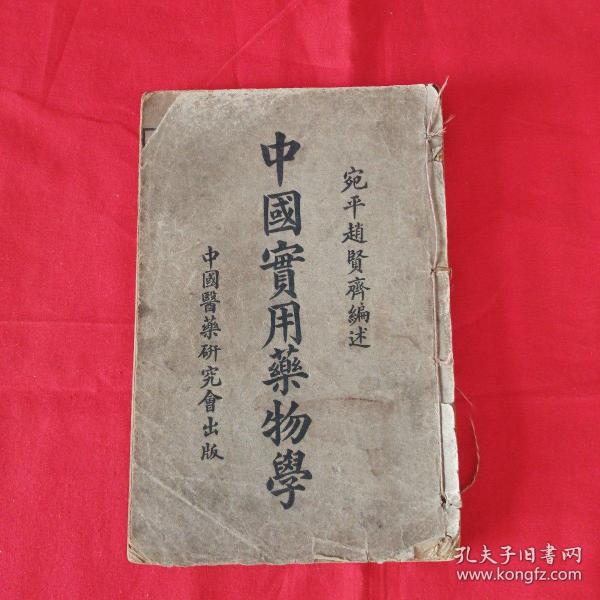 宛平趙賢齊編述
中國實用藥物學
中國醫藥研究會出版
孔夫子旧书网
www.kongfz.com